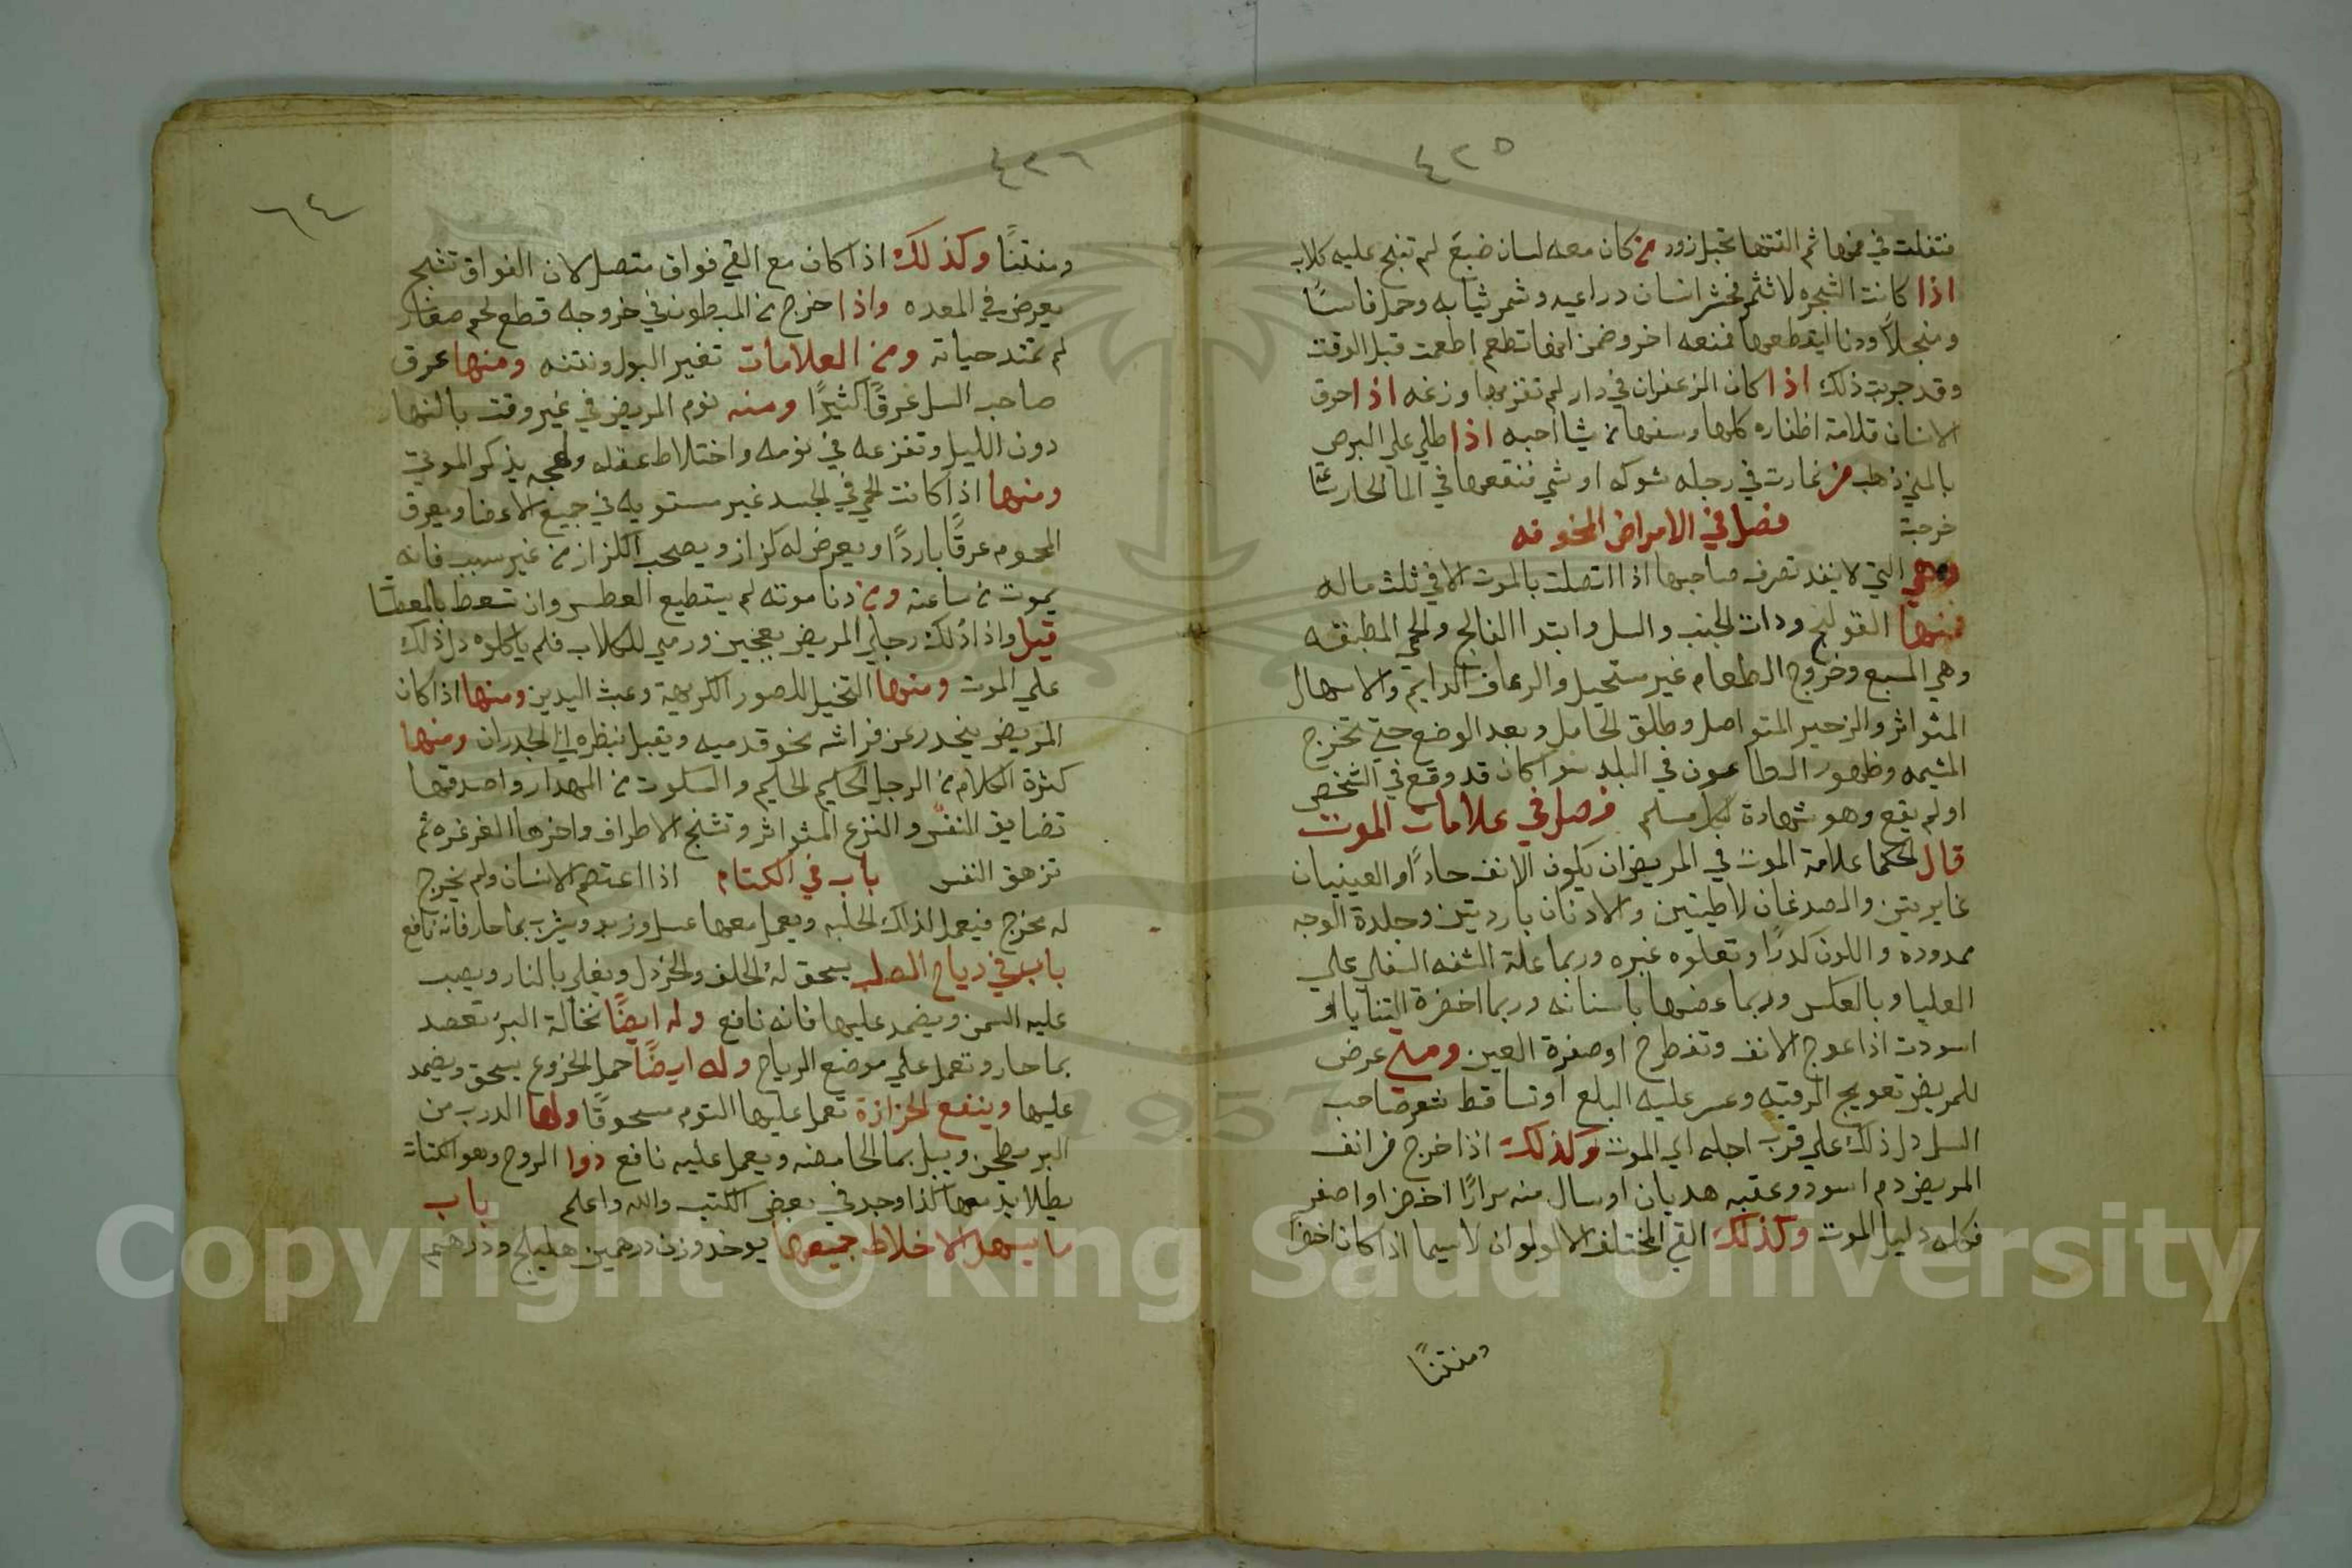 ٤٢٥
فتفلت في فمها ثم التقتها تحبل زود من كان معه لسان ضبع لم تنبح عليه كلاب
اذا كانت الشجره لا تثمر فحشر انسان دراعيه وشمر ثيابه وحمل فاسًا
ومنجلاً ودنا ليقطعها فمنعه اخر وضمن انها تطعم اطعمت قبل الوقت
وقد جربت ذلك اذا كان الزعفران في دار لم تقربها وزغه اذا احرق
الانسان قلامة اظفاره كلها وسقها من يشا احبه اذا طلي علي البرص
بالمني ذهب من غارت في رجله شوكه او شي فنقعها في الما الحار
خرجت
فصل في الامراض المخوفه
وهي التي لا ينفد تصرف صاحبها اذا اتصلت بالموت الا في ثلث ماله
فمنها القولنج ودات الجنب والسل وابتدا الفالج والحمي المطبقه
وهي السبع وخروج الطعام غير مستحيل والرعاف الدايم والاسهال
المتواثر والزحير المتواصل وطلق الحامل وبعد الوضع حتي تخرج
المشيمه وظهور الطاعون في البلد سوا كان قد وقع في الشخص
او لم يقع وهو شهادة لكل مسلم فصل في علامات الموت
قال الحكما علامة الموت في المريض ان يكون الانف حادًا والعينيان
غايريتين والصدغان لاطيتين والادنان بارديتين وجلدة الوجه
ممدودة واللون كدرًا وتعلوه غبره وربما علة الشفه السفلي علي
العليا وبالعكس وربما عضها باسنانه وربما اخضرة الثنايا او
اسودت اذا عوج الانف وتفطرح اوصفرة العين ومتي عرض
للمريض تعويج الرقبه وعسر عليه البلع او تساقط شعر صاحب
السل دل ذلك علي قرب اجله اي الموت وكذلك اذا خرج من انف
المريض دم اسود وعقبه هديان او سال منه مرارًا اخضر او اصفر
فكله دليل الموت وكذلك القي المختلف الالولوان لاسيما اذا كان اخضرًا
ومنتنًا
٤٢٦
٦٤
ومنتنًا وكذلك اذا كان مع القي فواق متصل لان الفواق تشنج
يعرض في المعده واذا خرج من المبطون في خروجه قطع لحم صغار
لم تمتد حياته ومن العلامات تغير البول ونتنه ومنها عرق
صاحب السل عرقًا كثيرًا ومنه نوم المريض في غير وقت بالنهار
دون الليل وتفزعه في نومه واختلاط عقله ولهجه يذكر الموتي
ومنها اذا كانت الحمي في الجسد غير مستويه في جميع الاعضا ويعرق
المحموم عرقًا باردًا ويعرض له كزاز ويصحب الكزاز من غير سبب فانه
يموت من ساعته ومن دنا موته لم يستطيع العطس وان تسعط بالمعطسا
قيل واذا دُلك رجلي المريض بعجين ورمي للكلاب فلم ياكلوه دل ذلك
علي الموت ومنها التخيل للصور الكريهة وعبث اليدين ومنها اذا كان
المريض ينحدر عن فراشه نحو قدميه ويقبل بنظره الي الجدران ومنها
كثرة الكلام من الرجل الحكيم الحليم والسكوت من المهدار واصدقها
تضايق النفس والنزع المثواثر وتشنج الاطراف واخرها الغرغره ثم
تزهق النفس باب في الكتام اذا اعتصم الانسان ولم يخرج
له مخرج فيعمل لذلك الحلبه ويعمل معها عسل وزبد ويشرب بما حار فانه نافع
باب في رياح الصلب يسحق له الحلف والخردل ويغلي بالنار ويصب
عليه السمن ويضمد عليها فانه نافع وله ايضًا نخالة البر تعصد
بما حار وتعمل علي موضع الرياح وله ايضًا حمل الخروع يسحق ويضمد
عليها وينفع للحزازة تعمل عليها التوم مسحوقًا ولها الدرب من
البر يطحن ويبل بما الحامضه ويعمل عليه نافع دوا الروح وهو الكتاة
يطلا بدمها كذا وجد في بعض الكتب والله واعلم باب
ما يسهل الاخلاط جميعها يوخد وزن درهمين هليلج ودرهم
Copyright © King Saud University
1957